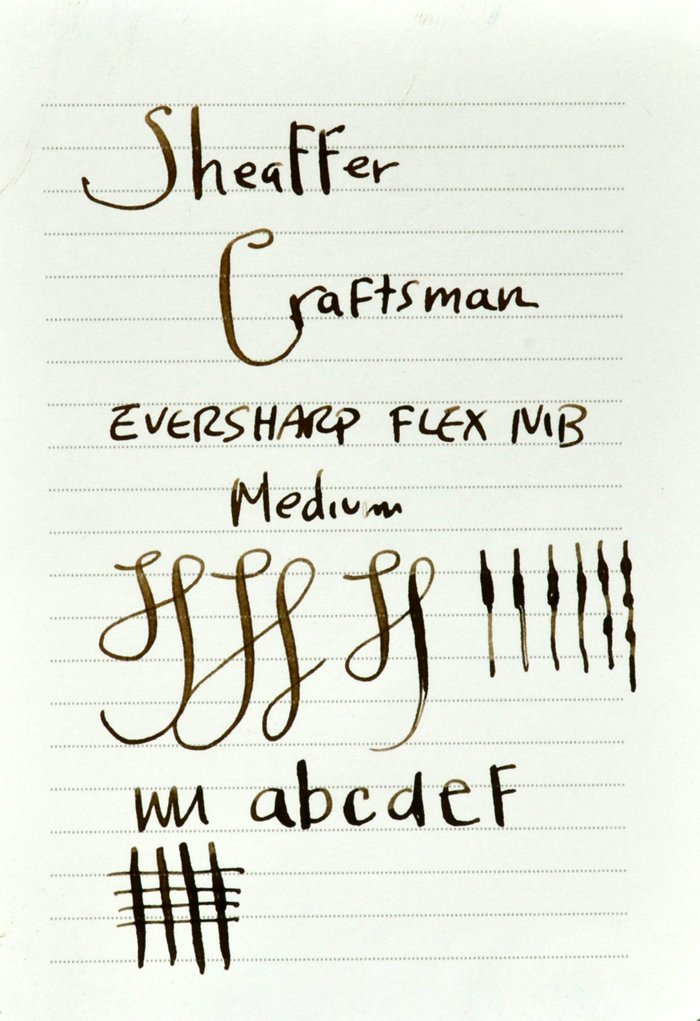 Sheaffer
Craftsman
EVERSHARP FLEX NIB
Medium
abcdef